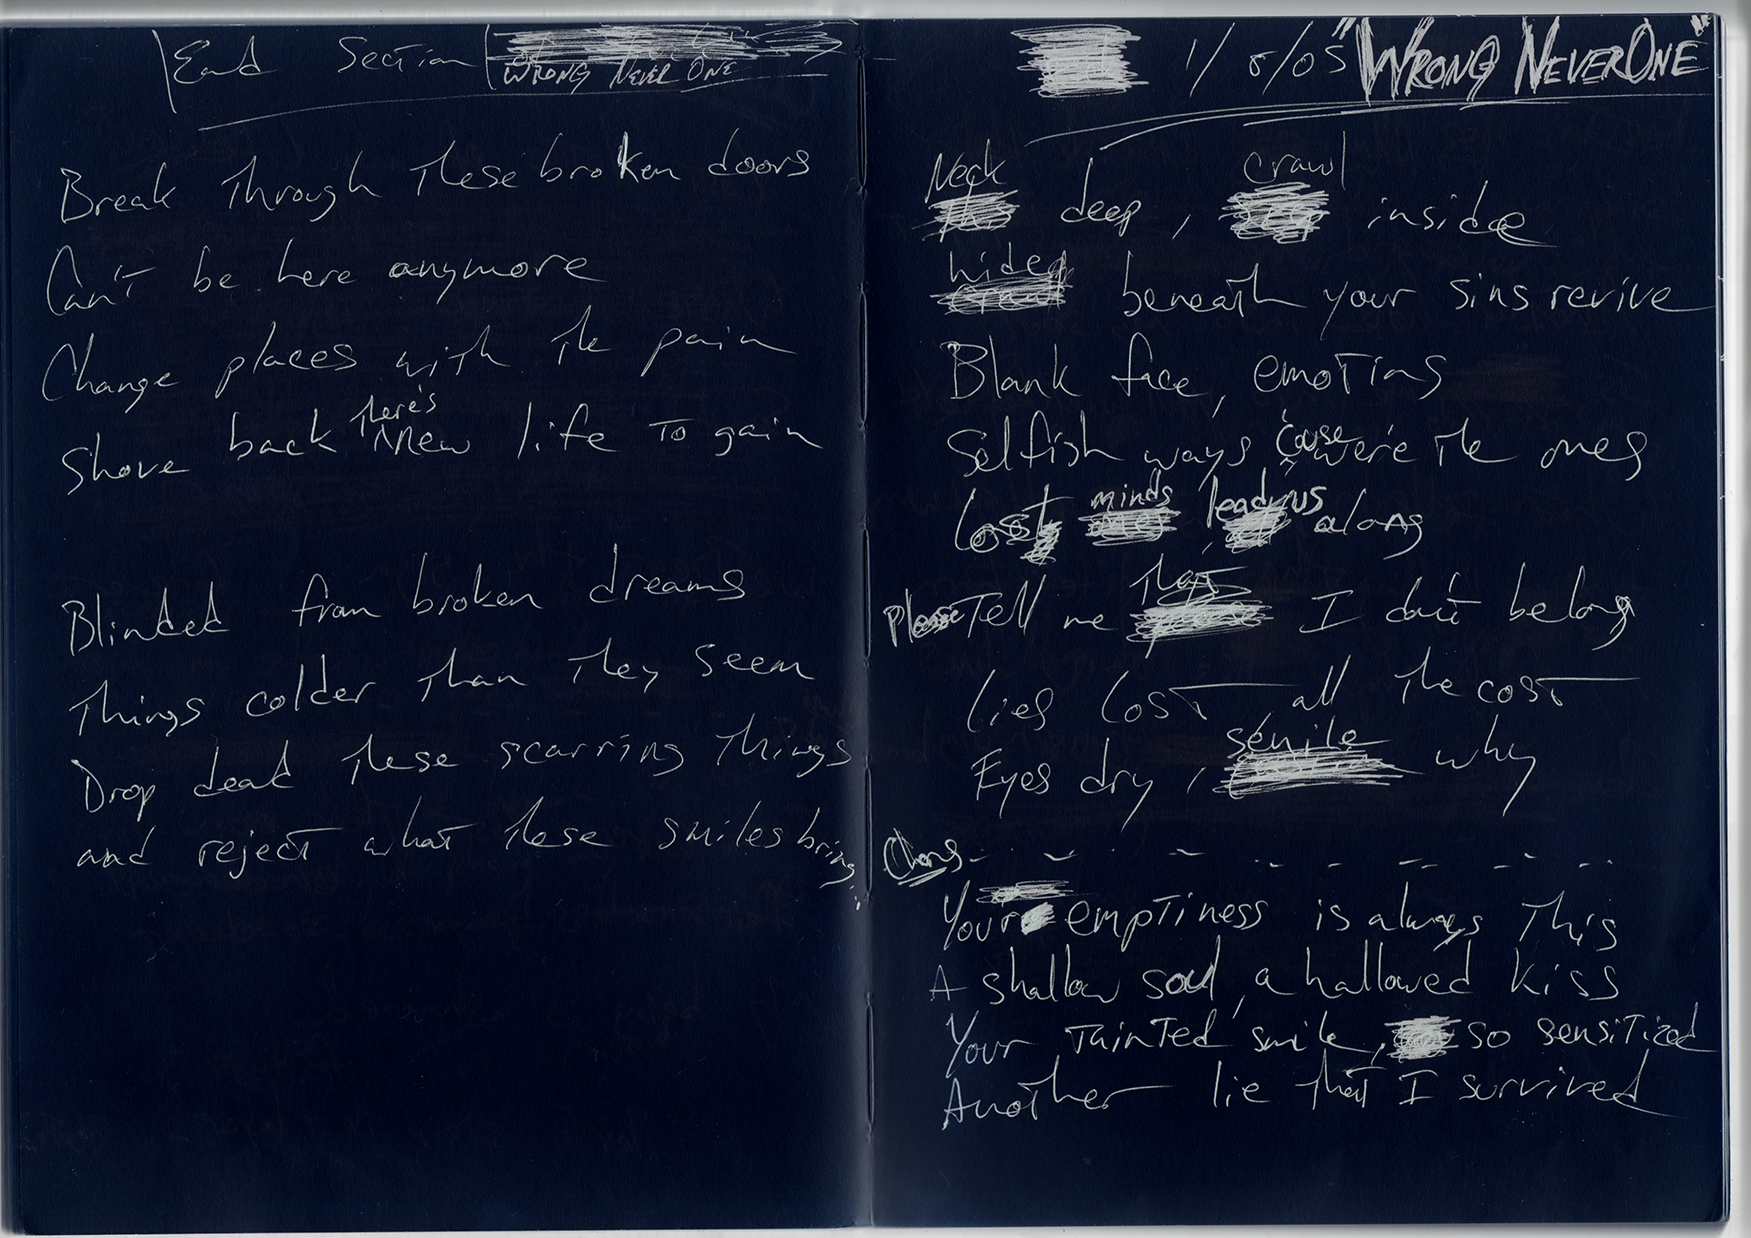 End Section
WRONG NEVER ONE
Break Through These broken doors
Can't be here anymore
Change places with the pain
Shove back There's New life to gain
Blinded from broken dreams
Things colder than They seem
Drop dead these scarring Things
and reject what these smiles bring
1/8/05 "WRONG NEVERONE"
Neck deep, crawl inside
hide beneath your sins revive
Blank face, emotions
Selfish ways 'cause we're the ones
lost minds lead us along
Please Tell me I don't belong
Lies lost all the cost
Eyes dry, senile why
Chorus
Your emptiness is always this
A shallow soul, a hallowed kiss
Your tainted smile, so sensitized
Another lie that I survived